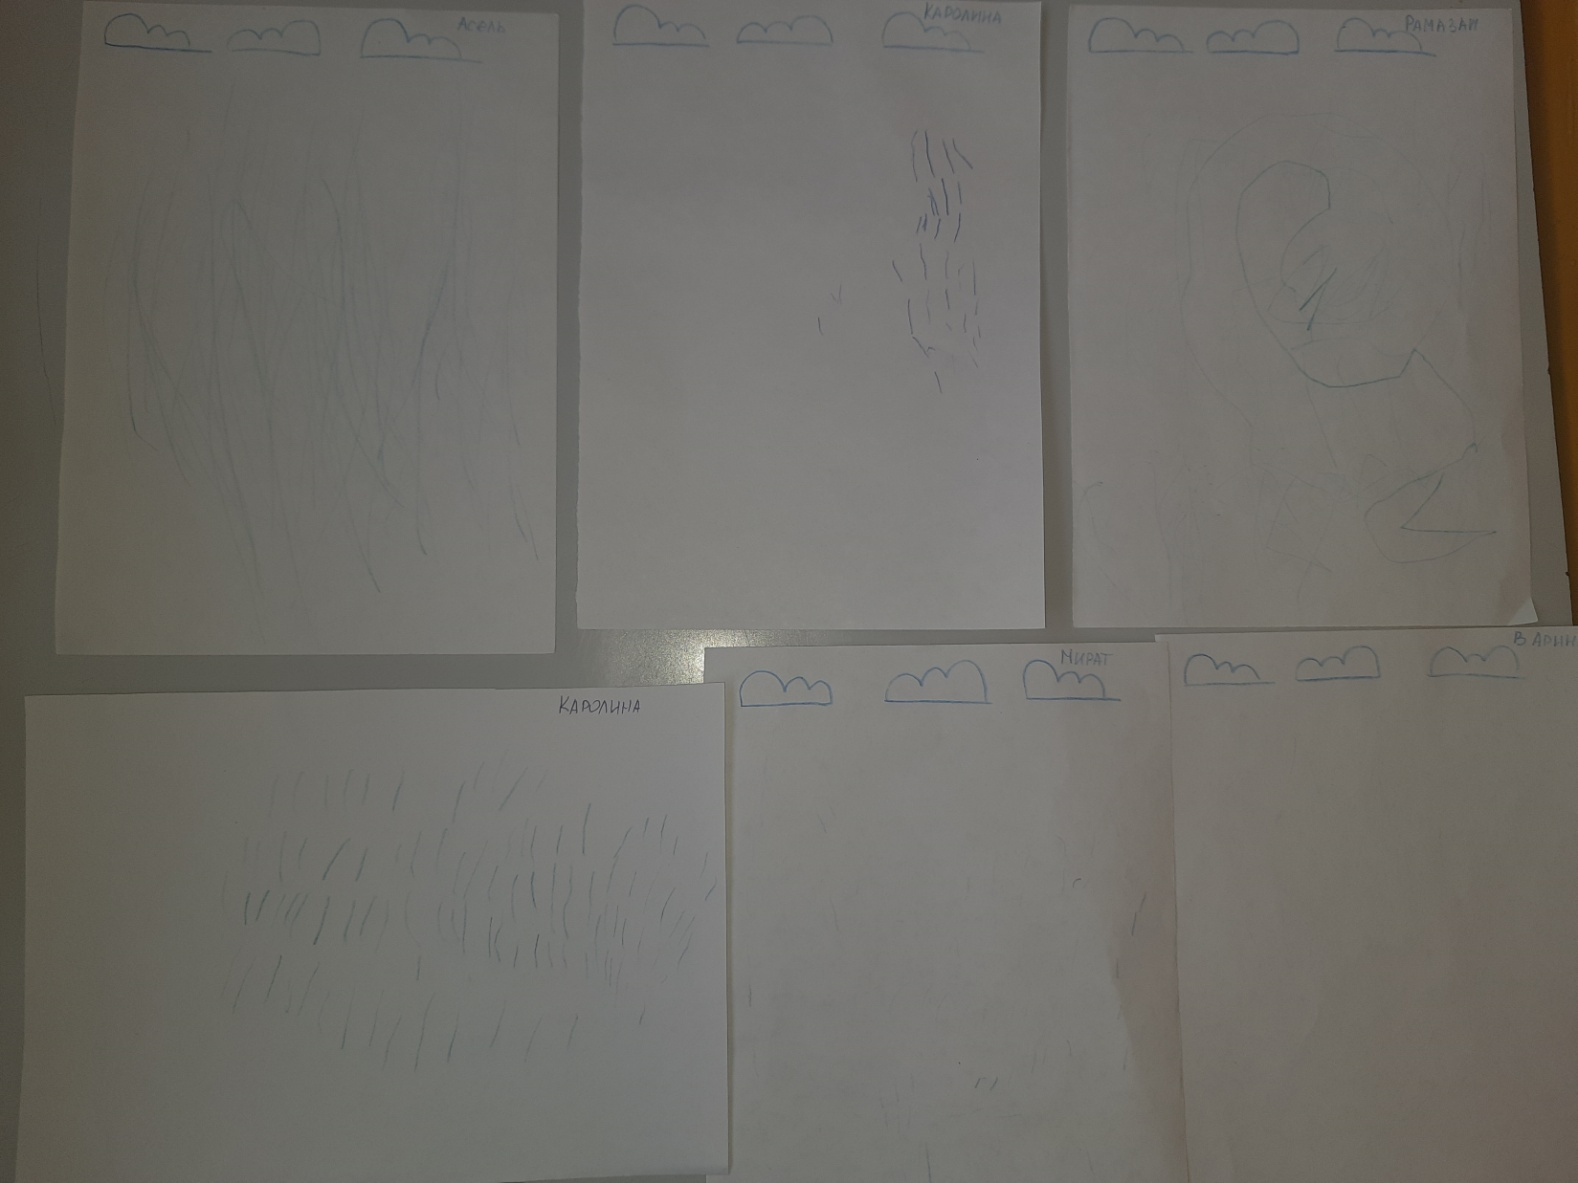 Асель
КАРОЛИНА
РАМАЗАН
КАРОЛИНА
МИРАТ